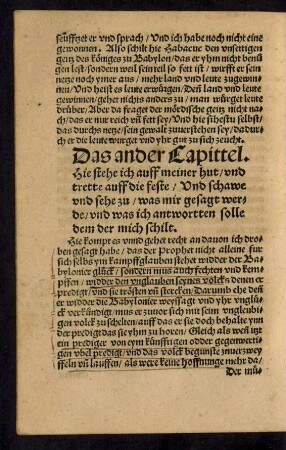 seufftzet er vnd sprach / Vnd ich habe noch nicht eine
gewonnen. Also schilt hie Habacuc den vnsettigen
geitz des königes zu Babylon / das er yhm nicht benů
gen lest / sondern weil sein teil so fett ist / wirfft er sein
netze noch ymer aus / mehr land vnd leute zugewin
nen / Vnd heist es leute erwürgen / Denn land vnd leute
gewinnen / geher nichts anders zu / man würget leute
drüber / Aber da fraget der mördische geitz nicht nach
das er nur reich vñ fett sey / Vnd hie sihestu selbst /
das durchs netze / sein gewalt zuuerstehen sey / dadur
ch er die leute wurget vnd yhr gut zu sich zeucht.
Das ander Capittel.
Hie stehe ich auff meiner hut / vnd
trette auff die feste / Vnd schawe
vnd sehe zu / was mir gesagt wer
de / vnd was ich antwortten solle
dem der mich schilt.
Hie kompt es vnnd gehet recht an dauon ich dro
ben gesagt habe / das der Prophet nicht alleine fur
sich selbs ym kampff glauben stehet widder der Ba
bylonier glück / sondern mus auch fechten vnd kem
pffen / widder den vnglauben seynes volcks denen er
predigt / vnd sie trösten vñ stercken / Darumb ehe deñ
er widder die Babylonier weyssagt vnd yhr vnglü
ck verkündigt / mus er zuuor sich mit seim vngleubi
gen volck zuschelten / auff das er sie doch behalte ynn
der predigt das sie yhm zu horen / Gleich als weñ itzt
ein prediger von eym künfftigen odder gegenwerti
gen vbel predigt / vnd das volck begunste zuuerzwey
ffeln vñ lauffen / als were keine hoffnunge mehr da /
Der mü-